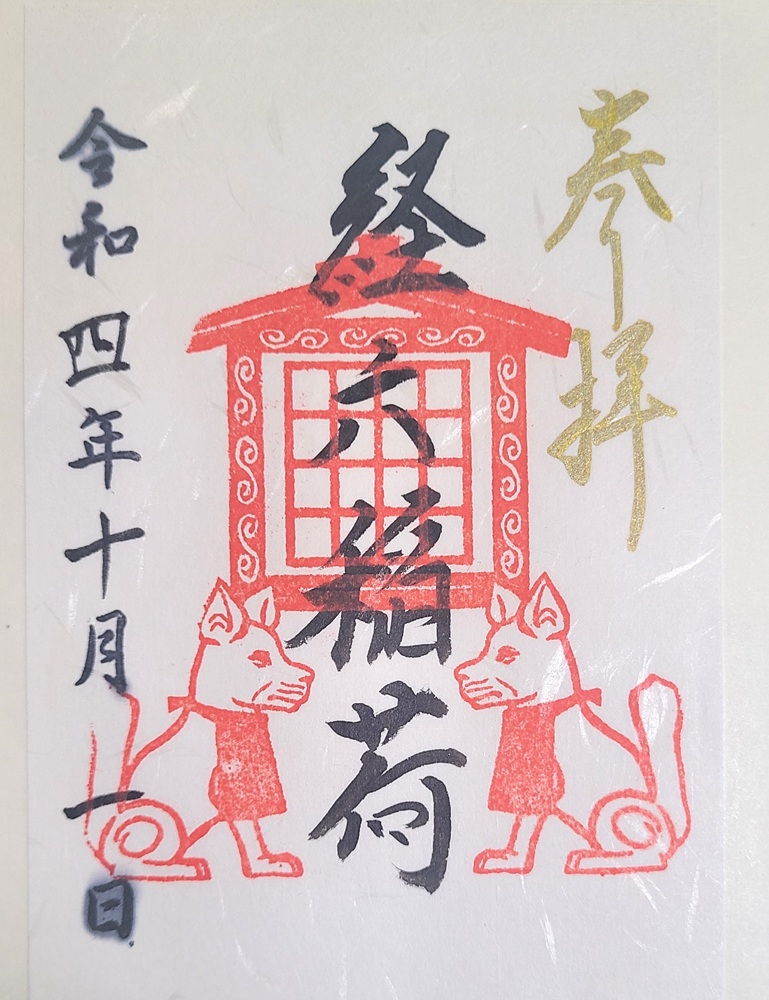 奉拝
経六稲荷
令和四年十月一日